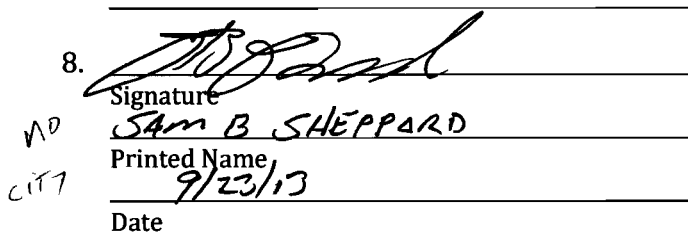 8.
Signature
no SAM B SHEPPARD
Printed Name
city 9/23/13
Date